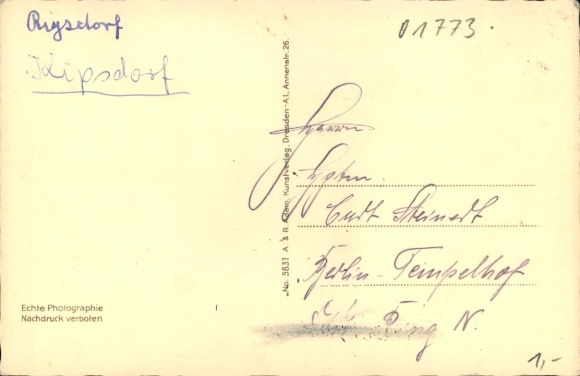 Rigsdorf
Kipsdorf
01773.
No. 5831 A. & R. Adam, Kunstverlag, Dresden-A.1, Annenstr. 26.
Herrn
Hptm.
Curt Steinert
Berlin-Tempelhof
Ring N.
Echte Photographie
Nachdruck verboten
1,-